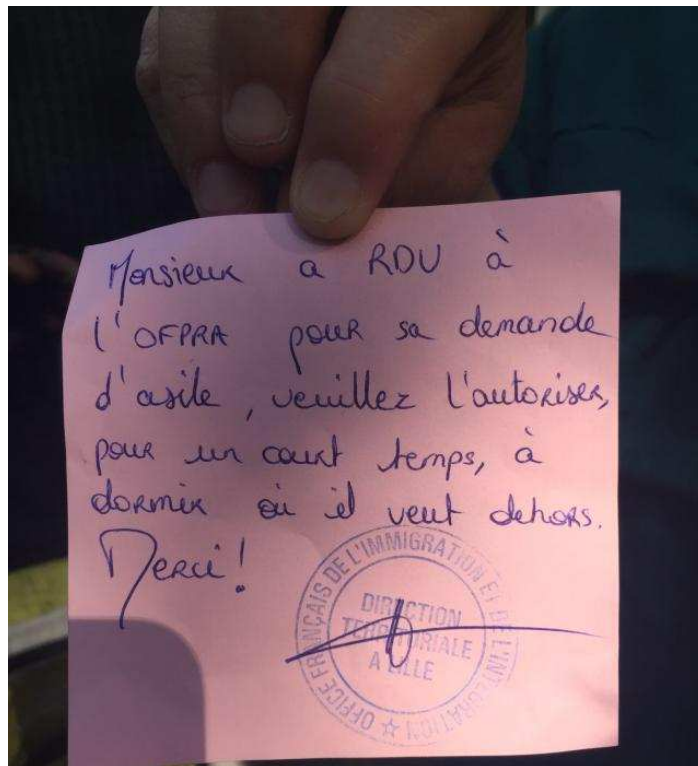 Monsieur a RDV à
l'OFPRA pour sa demande
d'asile, veuillez l'autoriser,
pour un court temps, à
dormir où il veut dehors.
Merci!
OFFICE FRANÇAIS DE L'IMMIGRATION ET DE L'INTÉGRATION
DIRECTION
TERRITORIALE
A LILLE